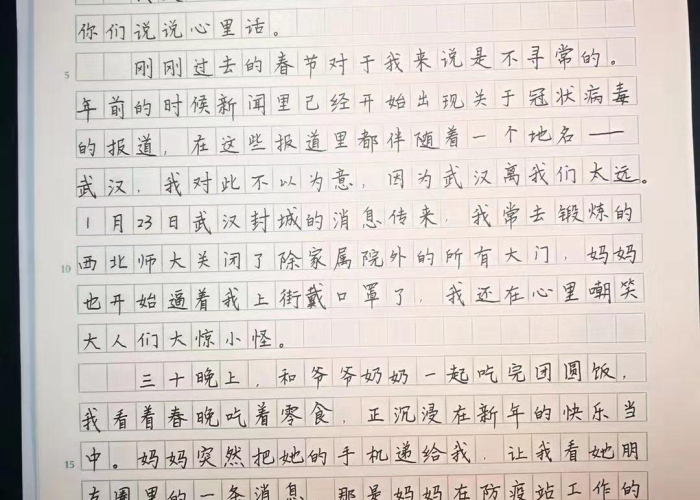 你们说说心里话。
5 刚刚过去的春节对于我来说是不寻常的。
年前的时候新闻里已经开始出现关于冠状病毒
的报道，在这些报道里都伴随着一个地名——
武汉，我对此不以为意，因为武汉离我们太远。
1月23日武汉封城的消息传来，我常去锻炼的
10 西北师大关闭了除家属院外的所有大门，妈妈
也开始逼着我上街戴口罩了，我还在心里嘲笑
大人们大惊小怪。
三十晚上，和爷爷奶奶一起吃完团圆饭，
我看着春晚吃着零食，正沉浸在新年的快乐当
15 中。妈妈突然把她的手机递给我，让我看她朋
友圈里的一条消息，那是妈妈在防疫站工作的